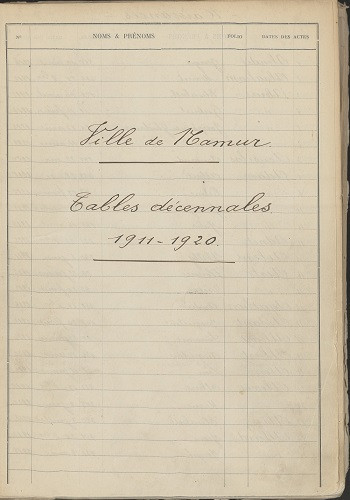 NOMS & PRÉNOMS FOLIO DATES DES ACTES
Ville de Namur
Tables décennales
1911-1920.